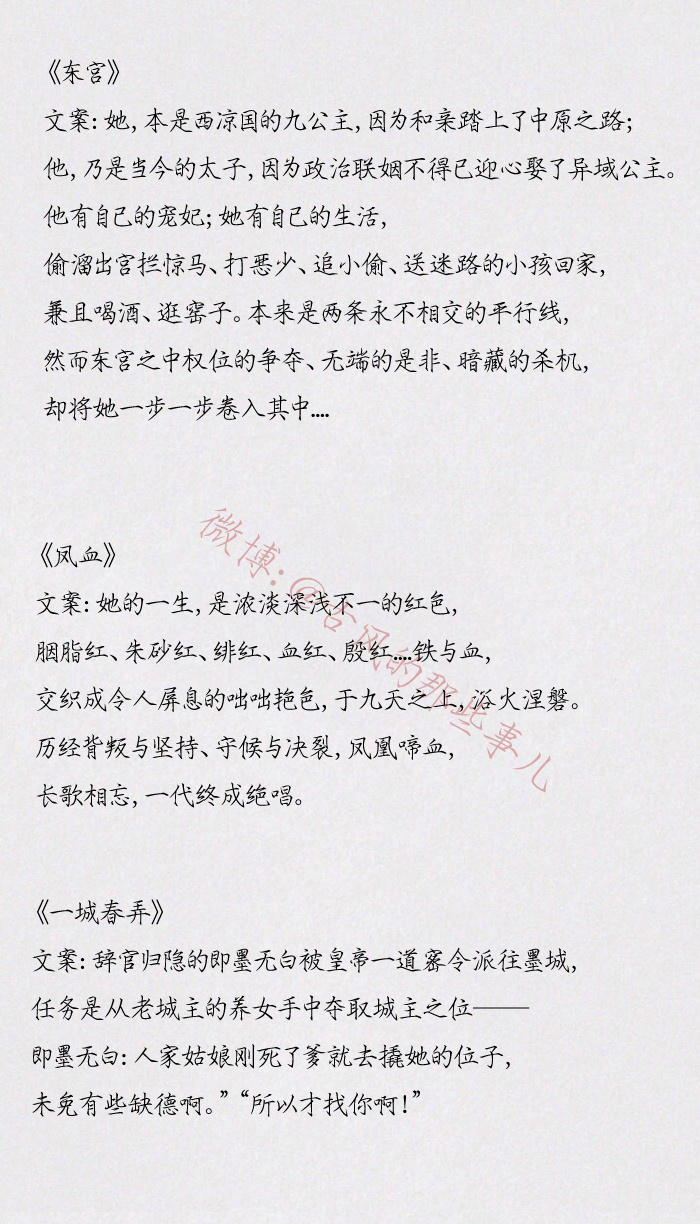 《东宫》
文案：她，本是西凉国的九公主，因为和亲踏上了中原之路；
他，乃是当今的太子，因为政治联姻不得已迎心娶了异域公主。
他有自己的宠妃；她有自己的生活，
偷溜出宫拦惊马、打恶少、追小偷、送迷路的小孩回家，
兼且喝酒、逛窑子。本来是两条永不相交的平行线，
然而东宫之中权位的争夺、无端的是非、暗藏的杀机，
却将她一步一步卷入其中....
《凤血》
文案：她的一生，是浓淡深浅不一的红色，
胭脂红、朱砂红、绯红、血红、殷红....铁与血，
交织成令人屏息的咄咄艳色，于九天之上，浴火涅磐。
历经背叛与坚持、守候与决裂，凤凰啼血，
长歌相忘，一代终成绝唱。
《一城春弄》
文案：辞官归隐的即墨无白被皇帝一道密令派往墨城，
任务是从老城主的养女手中夺取城主之位——
即墨无白：人家姑娘刚死了爹就去撬她的位子，
未免有些缺德啊。”“所以才找你啊！”
微博：@古风的那些事儿